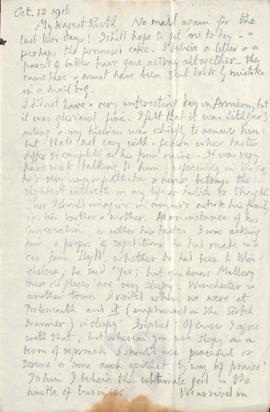 Oct. 12 1916
My dearest Ruth. No mail again for the
last two days! I shall hope to get one to-day - &
perhaps the promised cake. I believe a letter & a
parcel of butter have gone astray altogether - they
came here & must have been sent back by mistake
in a mail bag.
I did not have a very interesting day in Armentiers, but
it was glorious fine. I felt that it was
outing & my business was chiefly to amuse him;
but that's not easy with a person whose tastes
differ so completely as his from mine. It was very
hard work talking to him, especially as
he's very unsympathetic & never betrays the
slightest interest in my life or habits or thought
nor I should imagine in anyone's outside his family
i.e. his brother & mother. As an instance of his
conversation or rather his tastes I was asking
him, à propos of expeditions he had made in a
car from Lydd, whether he had been to Win-
chelsea; he said 'yes; but you know Mallory
these old places are very sleepy. Winchester is
another town I visited when we were at
Portsmouth and it (emphasised in the Scotch
manner) is sleepy'. I replied Of course I agree
with that, but whereas you use sleepy as a
term of reproach I should use peaceful or
serene or some such epithet by way of praise'.
To him I believe the ultimate good is the
hustle of business. We arrived in